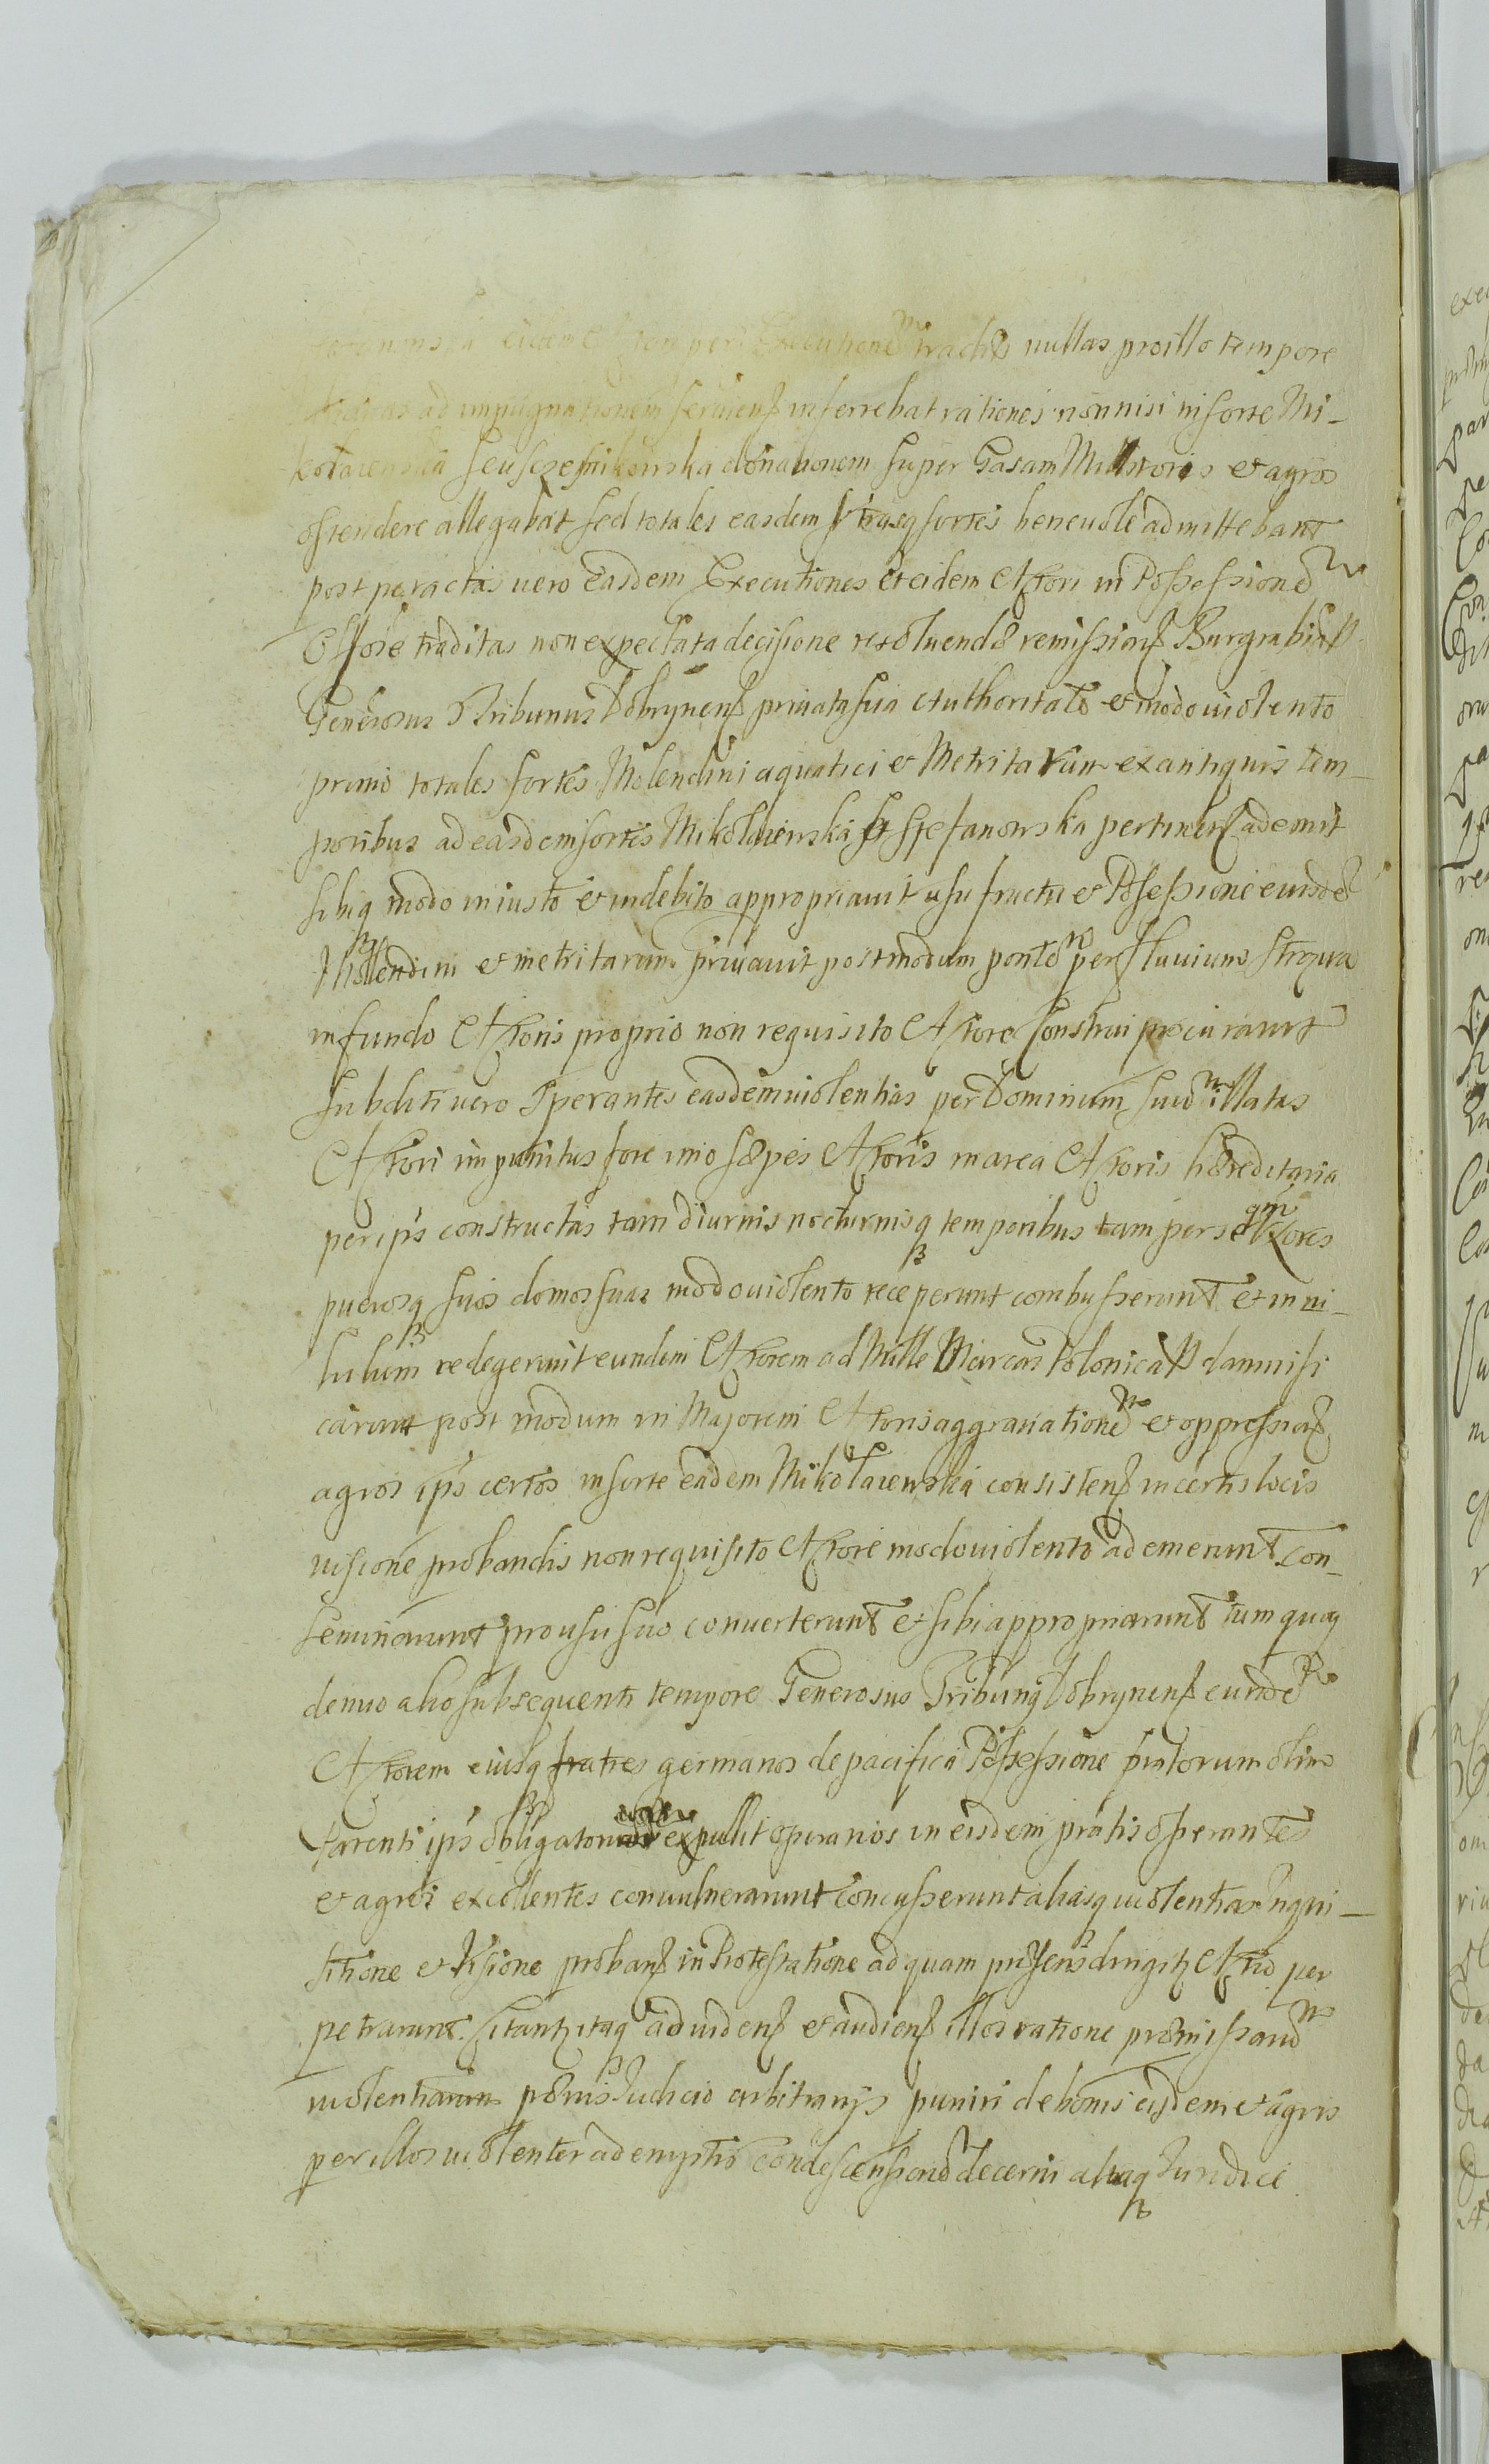 eidem per Executione tradit nullas pro illo tempore
ad impugnationem seruien inferrebat rationes nonnisi in sorte Mi-
kołaiewska seu donationem super Casam Militoris et agros
ostendere allegabat sed totales easdem vtrasq sortes beneuole admittebant
post peractas uero easdem Executiones et eidem Actori in Possessione
Actore traditas non expectata decisione resoluend remission Burgrabial
Generosus Tribunus Dobrynen priuata sua Authoritate et modo uiolento
primo totales sortes Molendini aquatici et Metritarum ex antiquis tem-
poribus ad easdem sortes Mikołaiewska et Stefanowska pertinen ademit
sibiq modo iniusto et indebito appropriauit usu fructu et Possessione eiusde
Mollendini et metritarum priuauit postmodum ponte per fluuium
in fundo Actoris proprio non requisito Actore Construi procurauit
subditi uero Sperantes easdem uiolentias per Dominum suu illatas
Actori impunitas fore imo sæpes Actoris in area Actoris hæreditaria
per ips constructas tam diurnis nocturnisq temporibus tam per se qm Vxores
puerosq suos domos suas modo uiolento receperunt combusserunt et in ni-
hilum redegerunt eundem Actorem ad Mille Marcas Polonical damnifi
carunt post modum in Majorem Actoris aggrauatione et oppression
agros ips certos in sorte eadem Mikołaiewska consisten in certis locis
uisione probandis non requisito Actore modo uiolento ademerunt con-
seminarunt pro usu suo conuerterunt et sibi appropriarunt tum quoq
denuo alio subsequenti tempore Generosus Tribung Dobrynen eunde
Actorem eiusq fratres germanos de pacifica Possessione pratorum olim
Parenti ips obligatorum expullit operarios in eisdem pratis operantes
et agros excollentes conuulnerarunt Concusserunt aliasq uiolentias Inqui-
sitione et Visione proban in Protestatione ad quam præsens dirigit Actio per
petrarunt. Citant itaq ad uiden et audien illos ratione præmissaru
uiolentiarum pænis Judicio arbitrarijs puniri de bonis eisdem et agris
per illos uiolenter ademptis condescension decerni aliaq Juridice